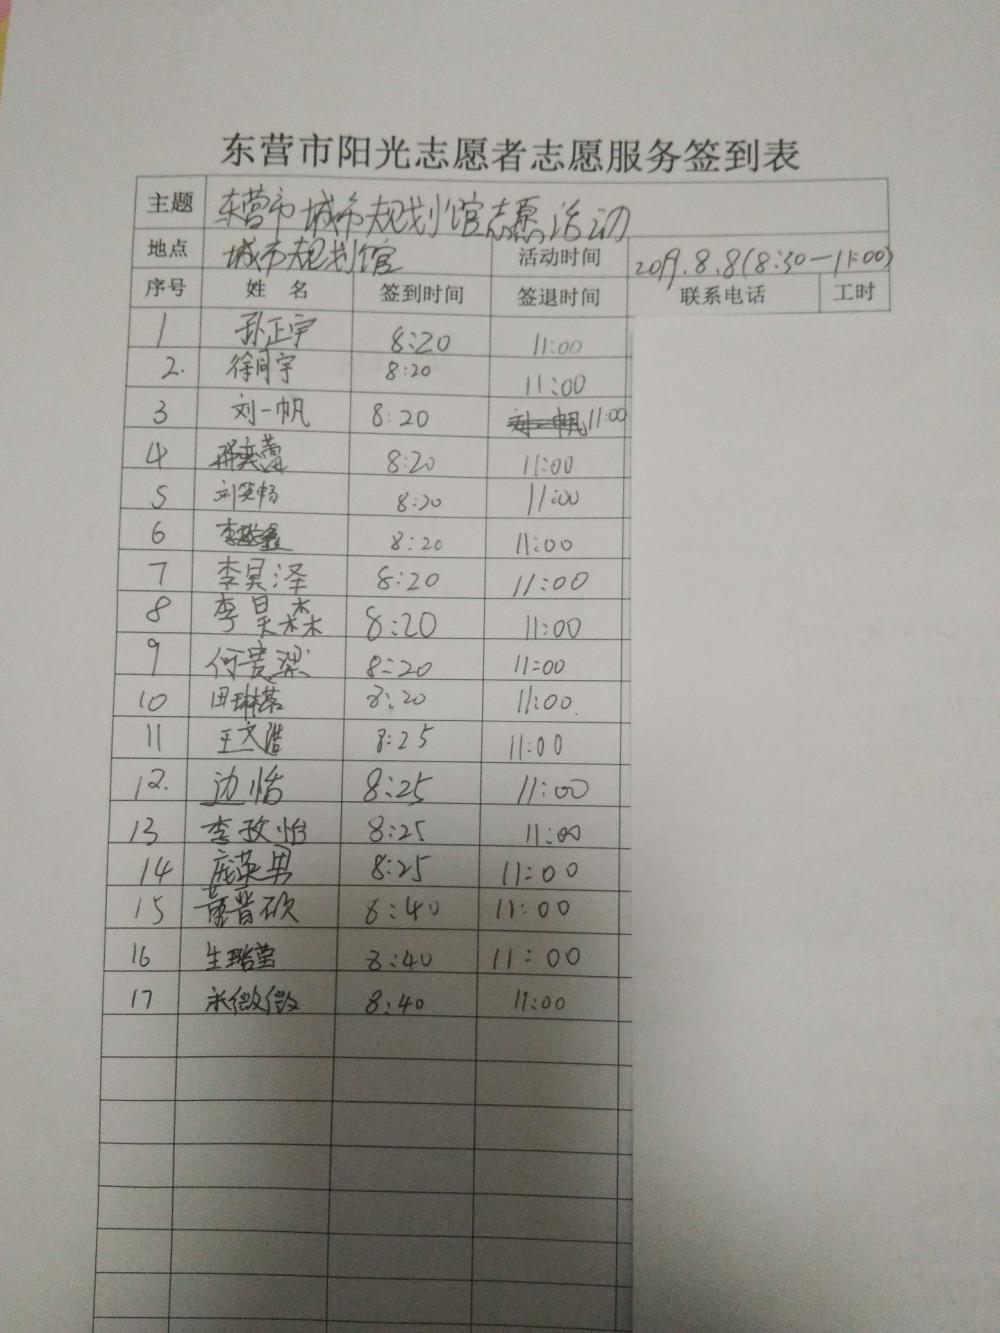 东营市阳光志愿者志愿服务签到表
主题 东营市城市规划馆志愿活动
地点 城市规划馆 活动时间 2019.8.8(8:30-11:00)
序号 姓名 签到时间 签退时间 联系电话 工时
1 孙正宇 8:20 11:00
2. 徐同宇 8:20 11:00
3 刘一帆 8:20 11:00
4 8:20 11:00
5 刘笑畅 8:20 11:00
6 李 8:20 11:00
7 李昊泽 8:20 11:00
8 李昊森 8:20 11:00
9 何 8:20 11:00
10 田琳 8:20 11:00.
11 王文浩 8:25 11:00
12. 边怡 8:25 11:00
13 李孜怡 8:25 11:00
14 庞英男 8:25 11:00
15 董晋硕 8:40 11:00
16 生 8:40 11:00
17 微微 8:40 11:00